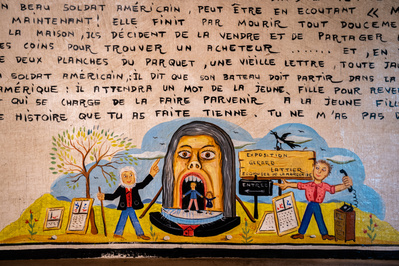 N BEAU SOLDAT AMÉRICAIN PEUT ÊTRE EN ÉCOUTANT « M
MAINTENANT! ELLE FINIT PAR MOURIR TOUT DOUCEME
LA MAISON, ILS DÉCIDENT DE LA VENDRE ET DE PARTAGER
ES COINS POUR TROUVER UN ACHETEUR ........ ET, EN
E DEUX PLANCHES DU PARQUET, UNE VIEILLE LETTRE, TOUTE JAU
U SOLDAT AMÉRICAIN, IL DIT QUE SON BATEAU DOIT PARTIR DANS LA
AMÉRIQUE: IL ATTENDRA UN MOT DE LA JEUNE FILLE POUR REVE
QUI SE CHARGE DE LA FAIRE PARVENIR À LA JEUNE FILLE
E HISTOIRE QUE TU AS FAITE TIENNE. TU NE M'AS PAS D
EXPOSITION
GÉRARD
LATTIER
ENTRÉE